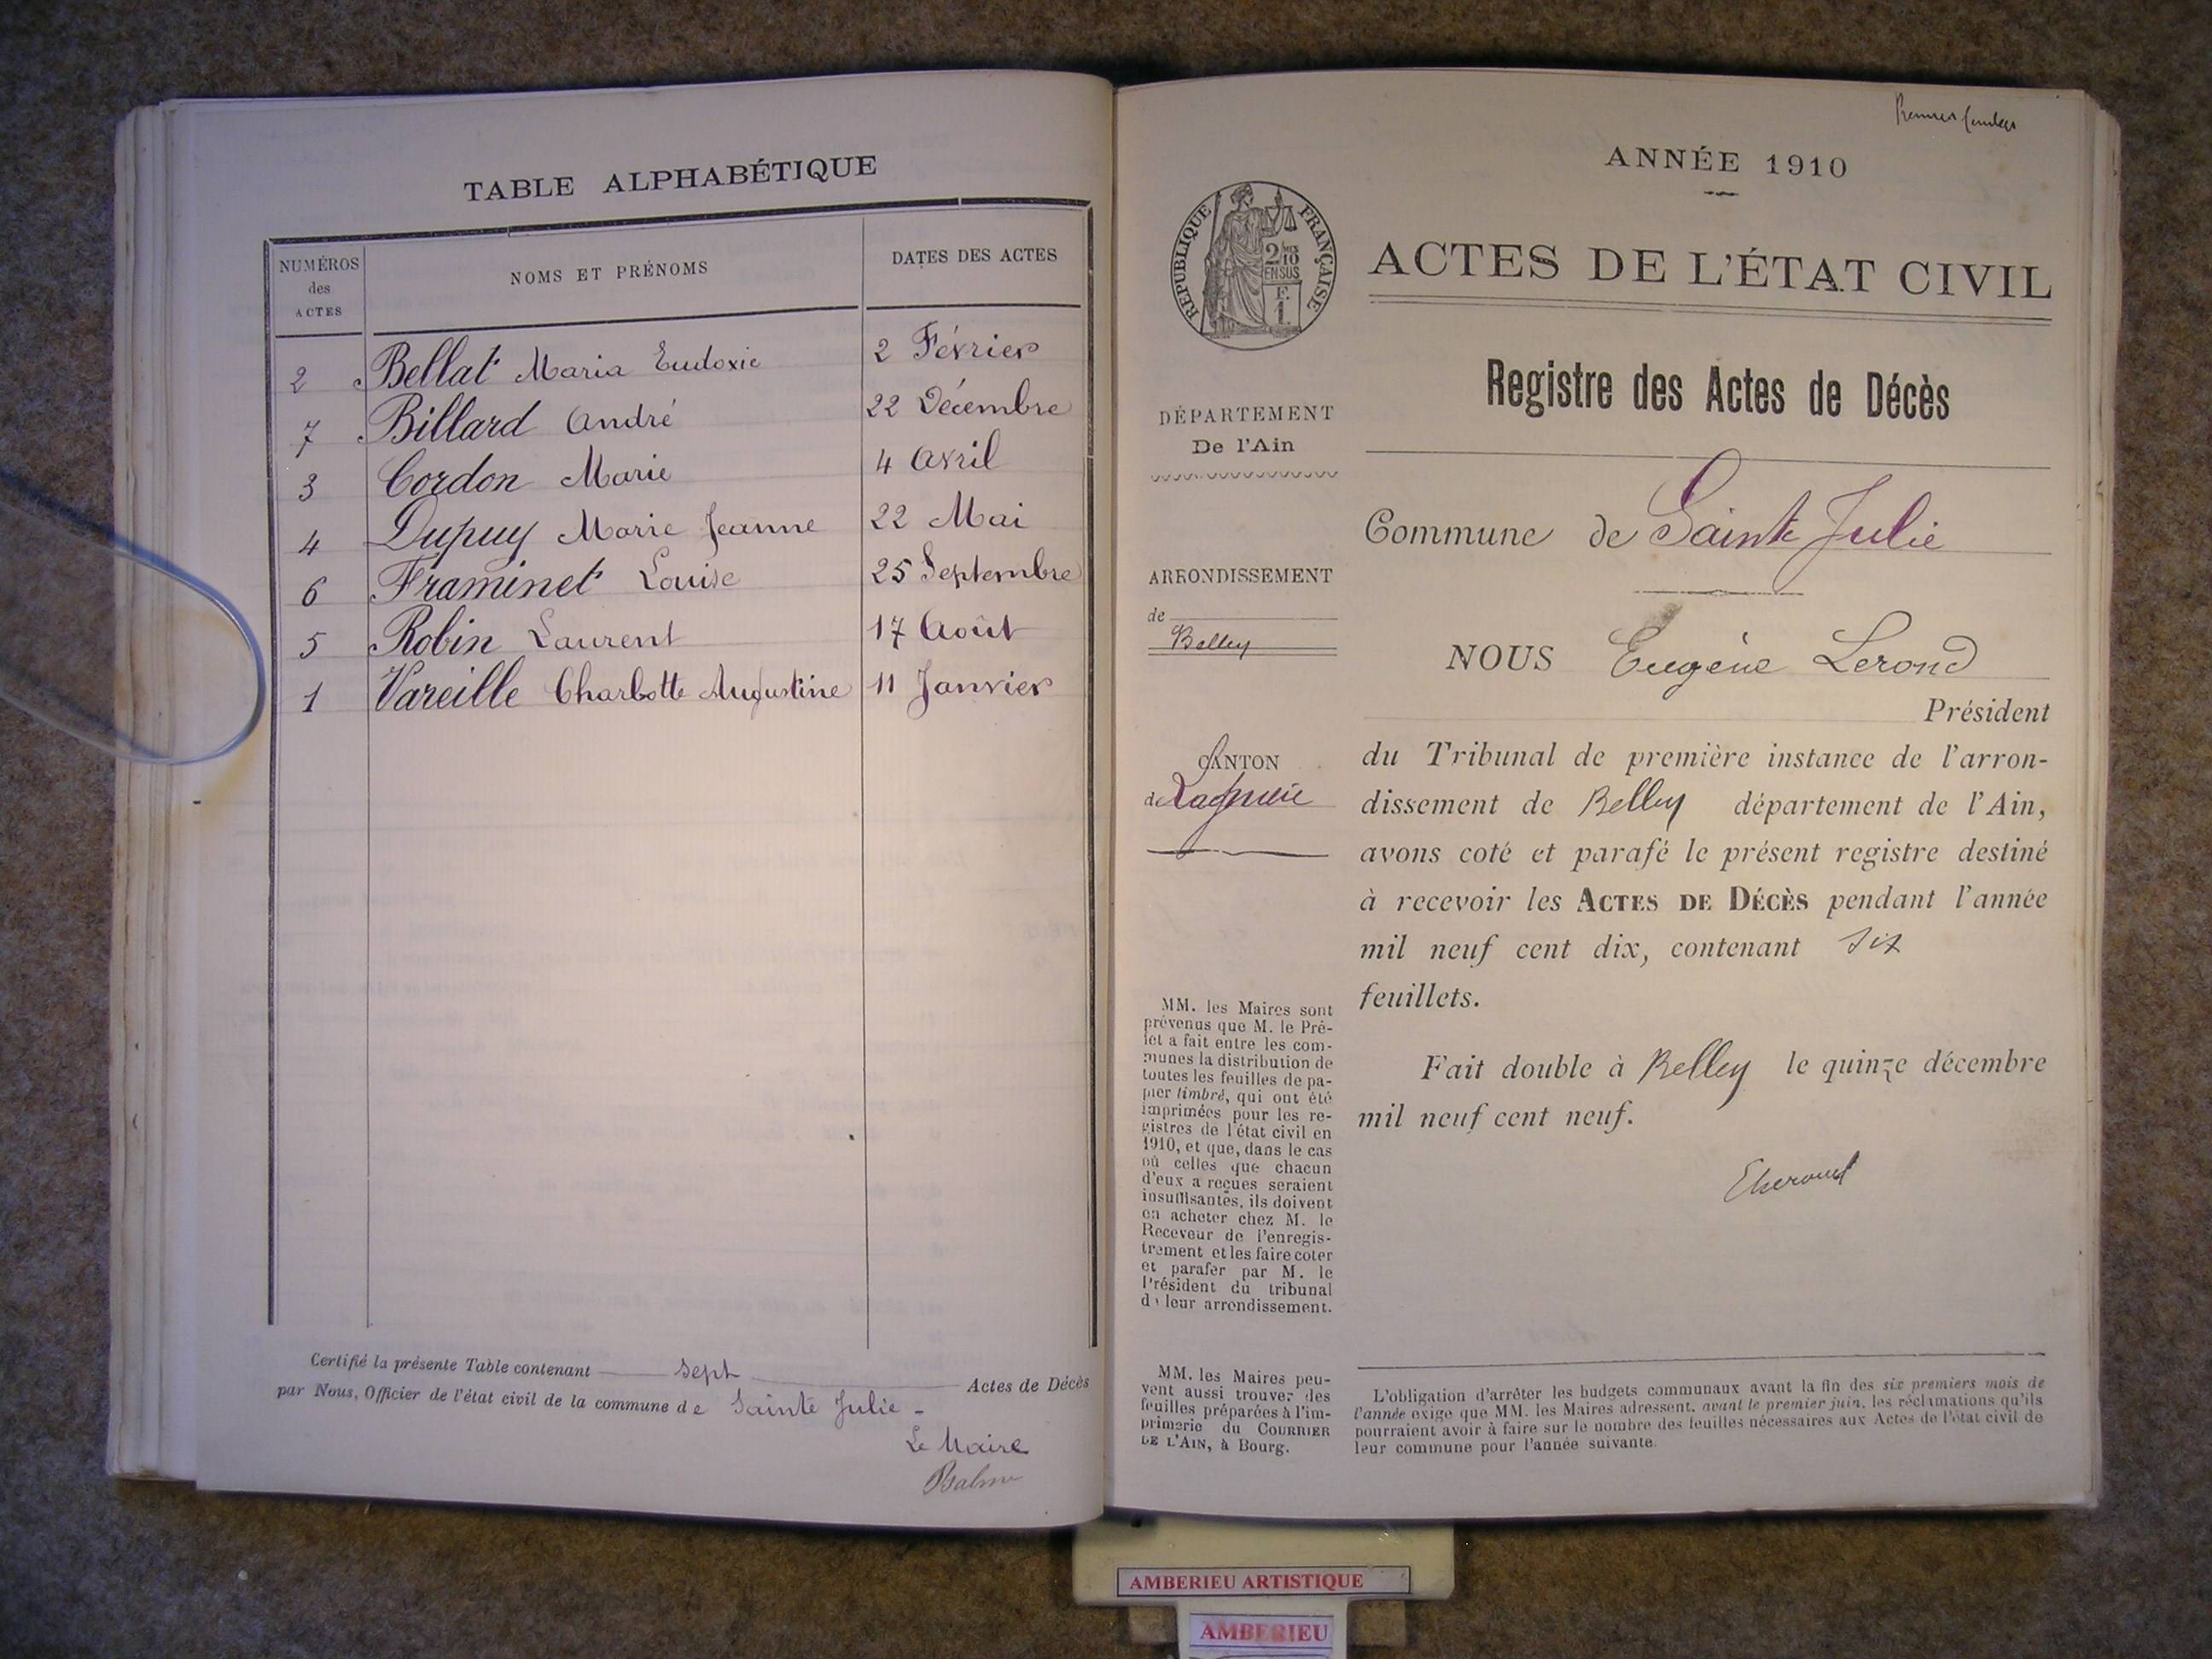 TABLE ALPHABÉTIQUE
NUMÉROS des ACTES
NOMS ET PRÉNOMS
DATES DES ACTES
2 Bellat Maria Eudoxie 2 Février
7 Billard André 22 Décembre
3 Cordon Marie 4 Avril
4 Dupuy Marie Jeanne 22 Mai
6 Framinet Louise 25 Septembre
5 Robin Laurent 17 Août
1 Vareille Charlotte Augustine 11 Janvier
Certifié la présente Table contenant sept Actes de Décès
par Nous, Officier de l'état civil de la commune de Sainte Julie
Le Maire
Premier
ANNÉE 1910
RÉPUBLIQUE FRANÇAISE
2/10
EN SUS
F.
1.
ACTES DE L'ÉTAT CIVIL
Registre des Actes de Décès
DÉPARTEMENT
De l'Ain
Commune de Sainte Julie
ARRONDISSEMENT
de
Belley
NOUS Eugène Lerond
Président
CANTON
de Lagnieu
du Tribunal de première instance de l'arron-
dissement de Belley département de l'Ain,
avons coté et parafé le présent registre destiné
à recevoir les ACTES DE DÉCÈS pendant l'année
mil neuf cent dix, contenant six
feuillets.
Fait double à Belley le quinze décembre
mil neuf cent neuf.
MM. les Maires sont
prévenus que M. le Pré-
fet a fait entre les com-
munes la distribution de
toutes les feuilles de pa-
pier timbré, qui ont été
imprimées pour les re-
gistres de l'état civil en
1910, et que, dans le cas
où celles que chacun
d'eux a reçues seraient
insuffisantes, ils doivent
en acheter chez M. le
Receveur de l'enregis-
trement et les faire coter
et parafer par M. le
Président du tribunal
de leur arrondissement.
MM. les Maires peu-
vent aussi trouver des
feuilles préparées à l'im-
primerie du COURRIER
DE L'AIN, à Bourg.
L'obligation d'arrêter les budgets communaux avant la fin des six premiers mois de
l'année exige que MM. les Maires adressent, avant le premier juin, les réclamations qu'ils
pourraient avoir à faire sur le nombre des feuilles nécessaires aux Actes de l'état civil de
leur commune pour l'année suivante.
AMBERIEU ARTISTIQUE
AMBERIEU